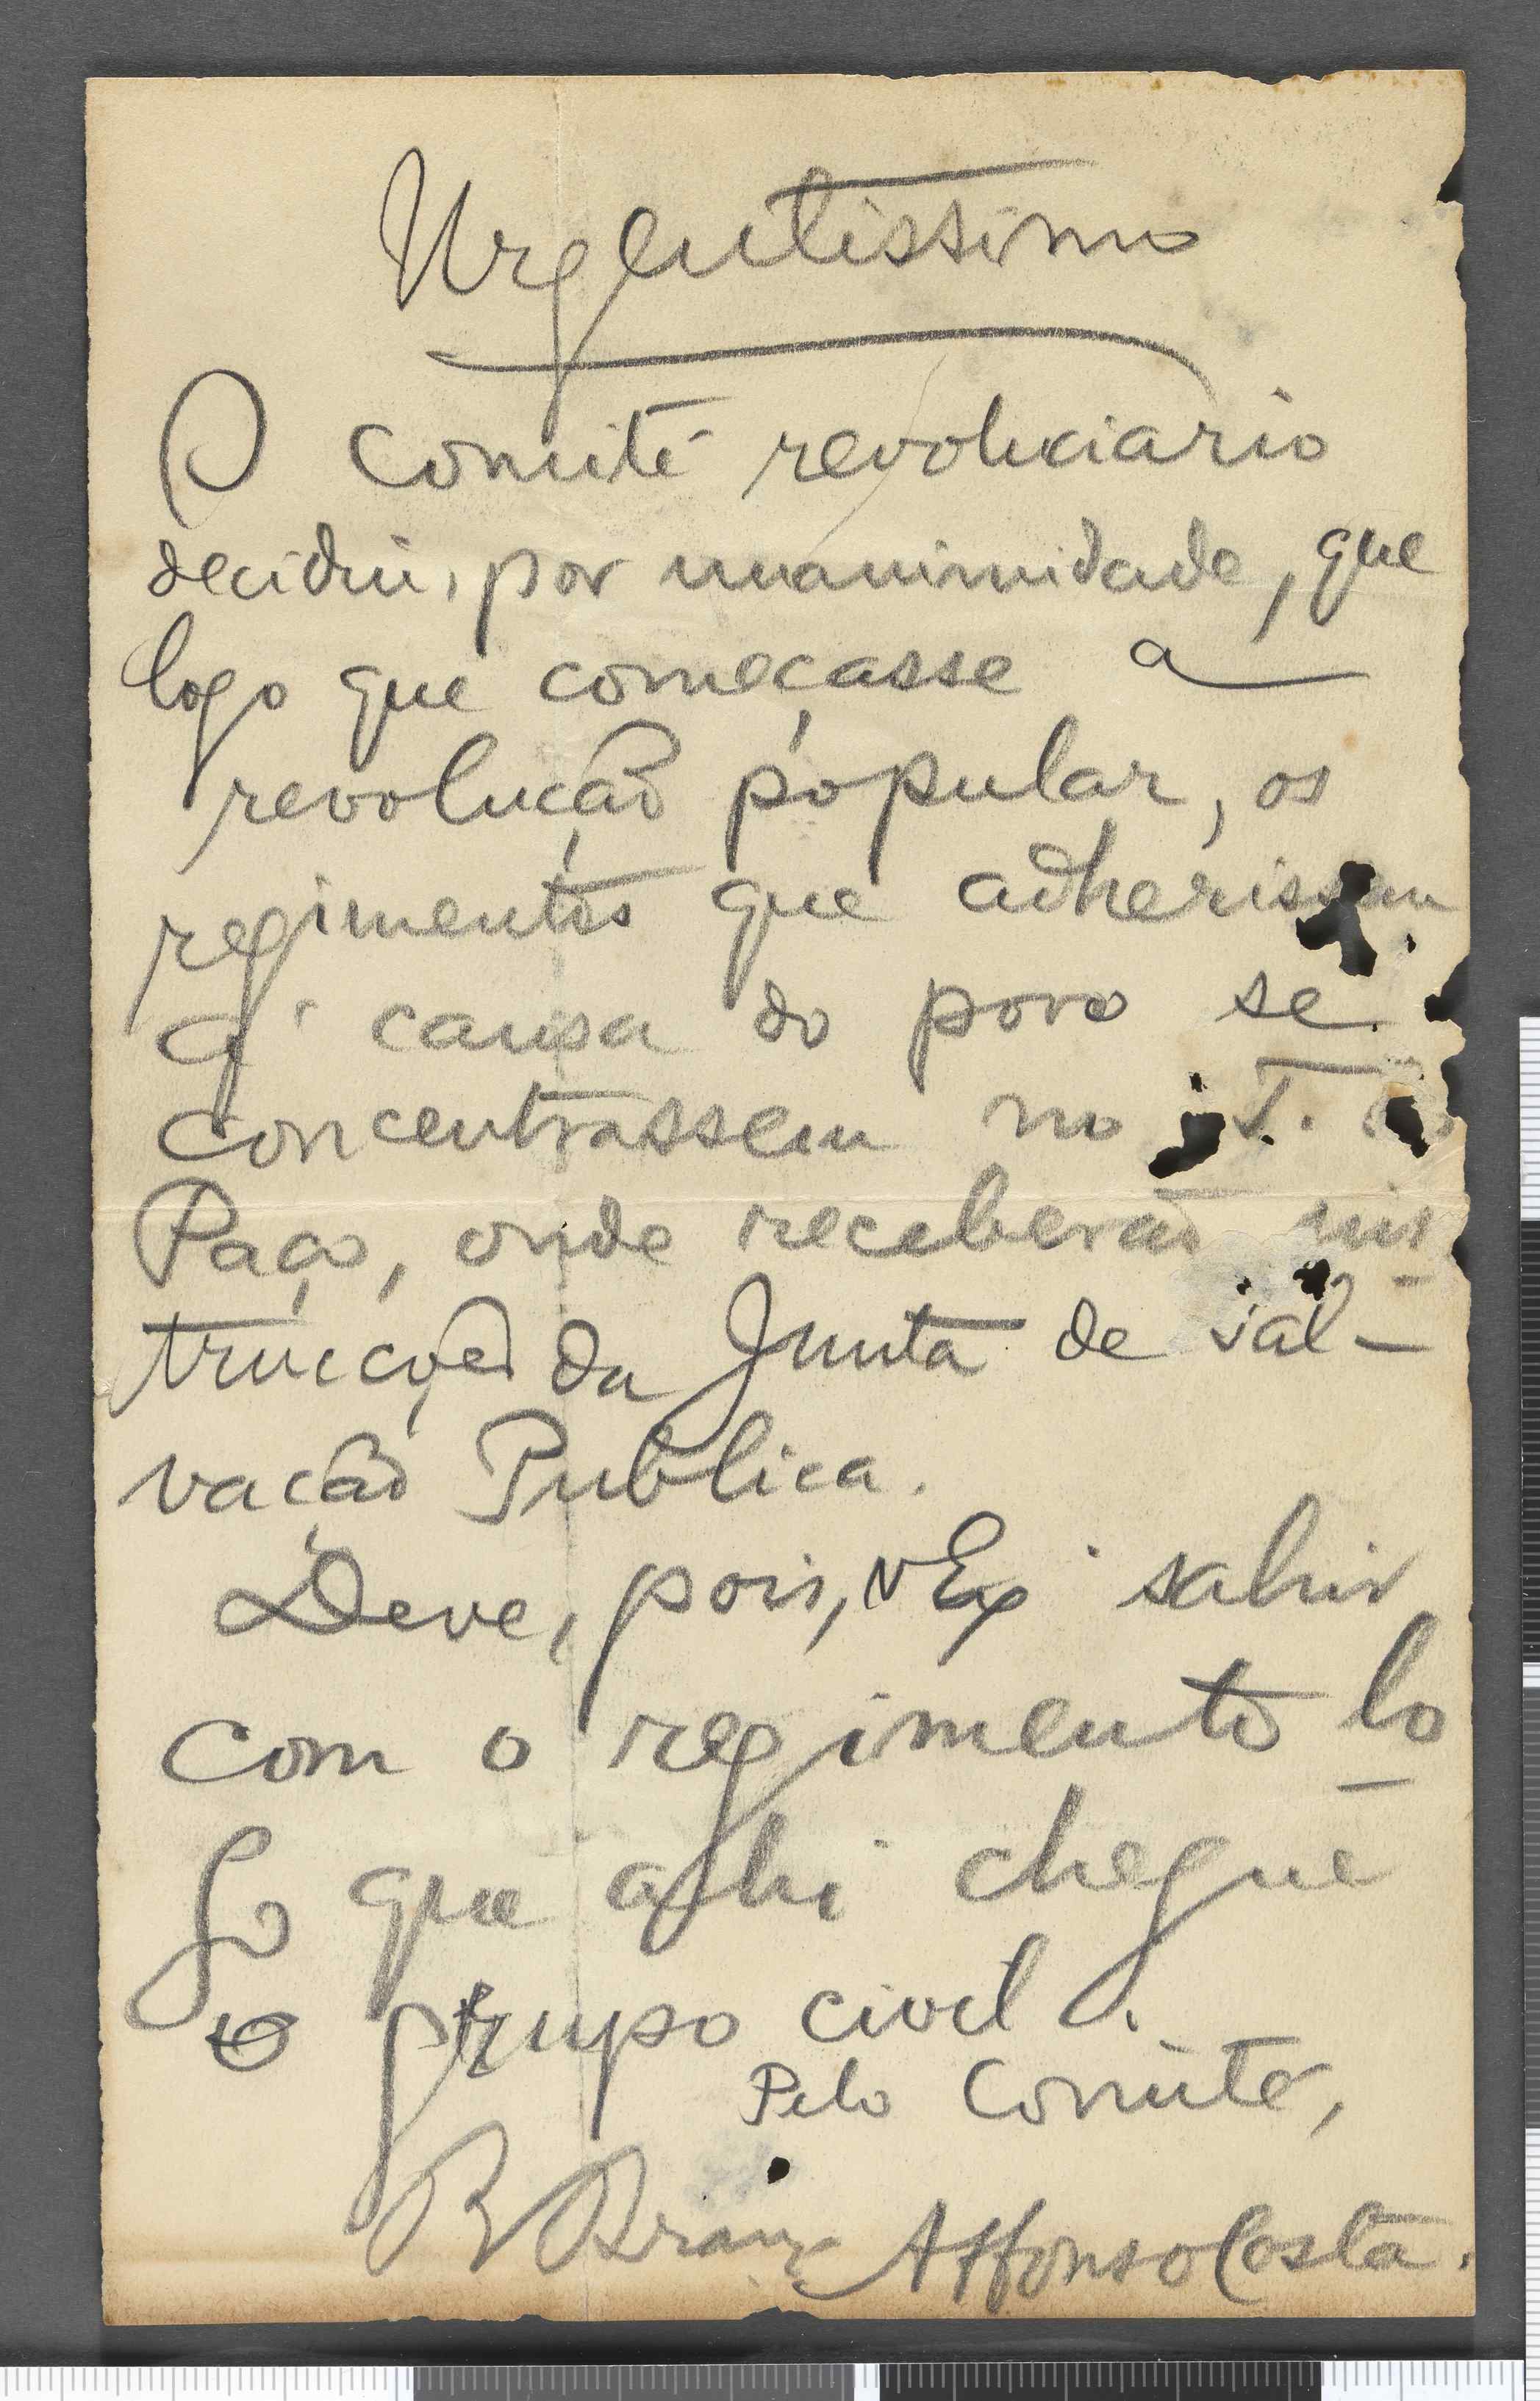 Urgentissimo
O comité revoluciario
decidiu, por unanimidade, que
logo que começasse a
revolução popular, os
regimentos que adherissem
á causa do povo se
concentrassem no T.
Paço, onde receberão ins
trucções da Junta de Sal-
vação Publica.
Deve, pois, V Exª sahir
com o regimento lo
go que ahi chegue
o grupo civil.
Pelo Comité,
Affonso Costa.